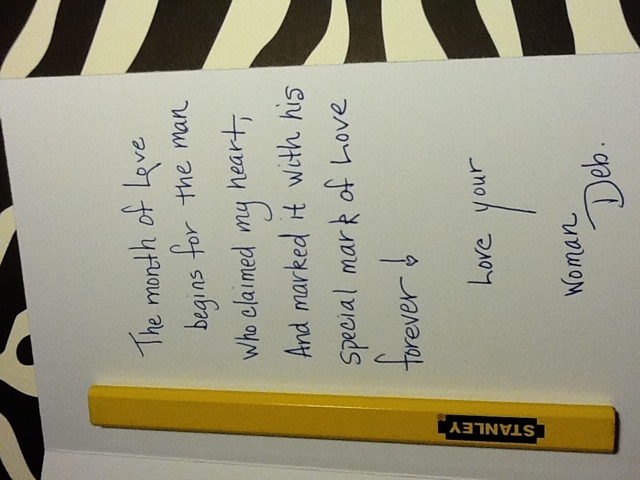 The month of Love
begins for the man
who claimed my heart,
And marked it with his
special mark of Love
forever ↓
Love your
Woman
Deb.
STANLEY®